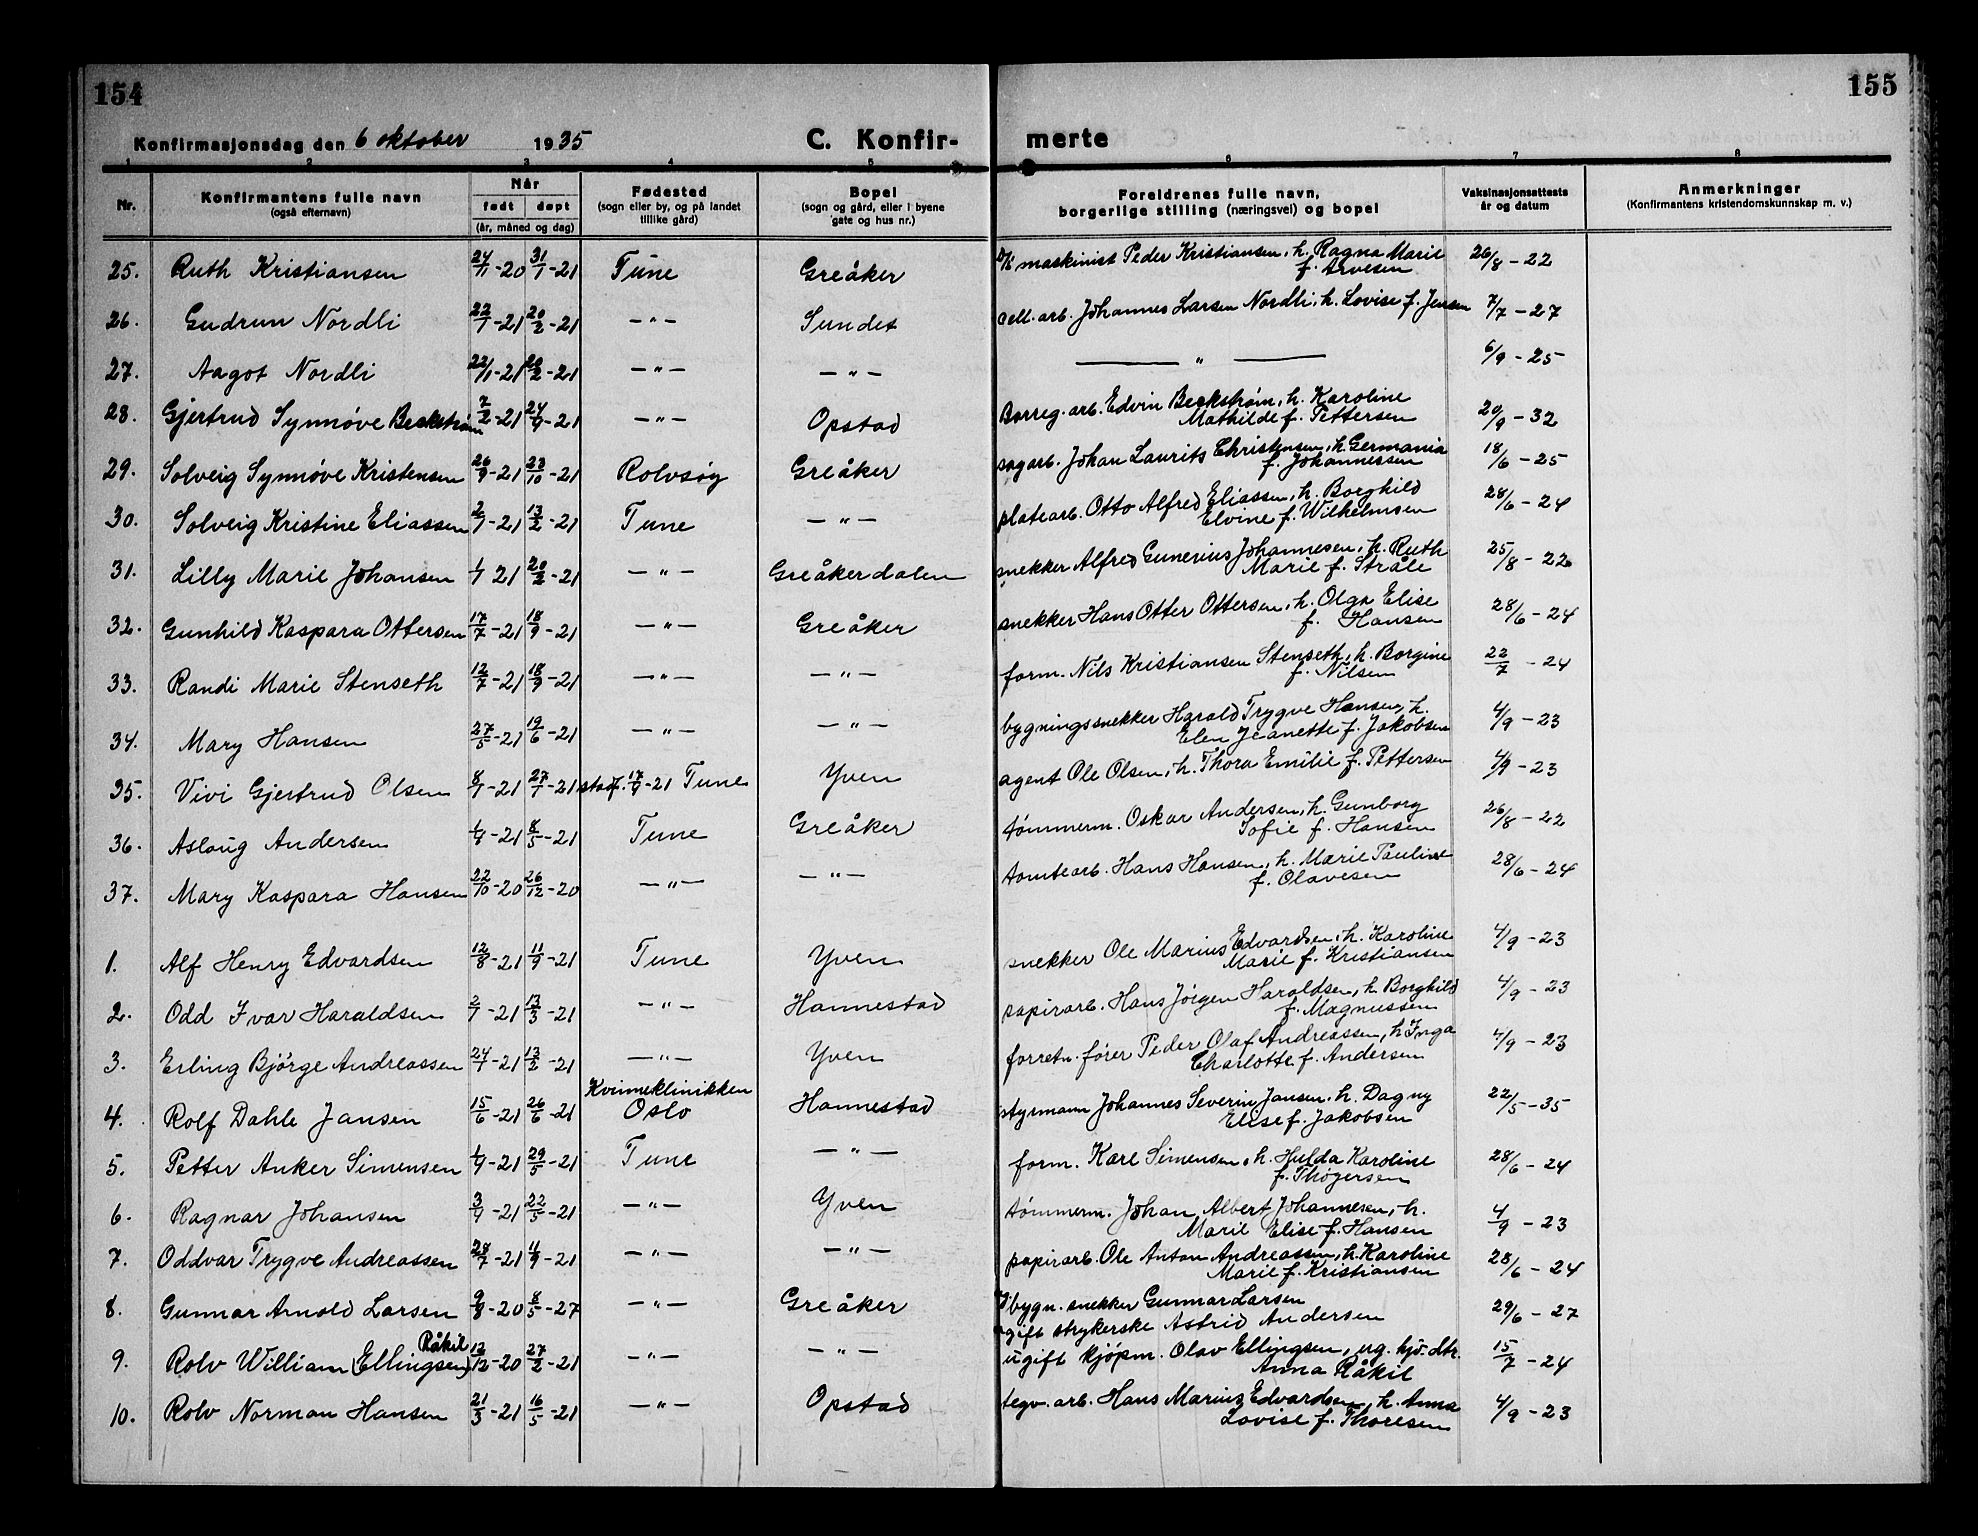 154
155
Konfirmasjonsdag den 6 oktober 1935
C. Konfir-
merte
1 2 3 4 5 6 7 8
Nr. Konfirmantens fulle navn (også efternavn) Når født døpt (år, måned og dag) Fødested (sogn eller by, og på landet tillike gård) Bopel (sogn og gård, eller i byene gate og hus nr.) Foreldrenes fulle navn, borgerlige stilling (næringsvei) og bopel Vaksinasjonsattests år og datum Anmerkninger (Konfirmantens kristendomskunnskap m. v.)
25. Ruth Kristiansen 24/11-20 31/1-21 Tune Greåker D/S maskinist Peder Kristiansen, h. Ragna Marie f. Arvesen 26/8-22
26. Gudrun Nordli 22/1-21 20/2-21 —"— Sundet cell. arb. Johannes Larsen Nordli, h. Lovise f. Jensen 7/7-27
27. Aagot Nordli 22/1-21 20/2-21 —"— —"— —"— 6/9-25
28. Gjertrud Synnøve Beckstrøm 7/2-21 24/4-21 —"— Opstad Borreg. arb. Edvin Beckstrøm, h. Karoline Mathilde f. Pettersen 20/9-32
29. Solveig Synnøve Kristensen 26/9-21 23/10-21 Rolvsøy Greåker sagarb. Johan Laurits Christensen, h. Germania f. Johannessen 18/6-25
30. Solveig Kristine Eliassen 2/1-21 13/2-21 Tune —"— platearb. Otto Alfred Eliassen, h. Borghild Elvine f. Wilhelmsen 28/6-24
31. Lilly Marie Johansen 1/1 21 20/2-21 —"— Greåkerdalen snekker Alfred Gunerius Johannesen, h. Ruth Marie f. Stråle 25/8-22
32. Gunhild Kaspara Ottersen 17/7-21 18/9-21 —"— Greåker snekker Hans Otter Ottersen, h. Olga Elise f. Hansen 28/6-24
33. Randi Marie Stenseth 12/7-21 18/9-21 —"— —"— form. Nils Kristiansen Stenseth, h. Borgine f. Nilsen 22/7-24
34. Mary Hansen 27/5-21 19/6-21 —"— —"— bygningssnekker Harald Trygve Hansen, h. Elen Jeanette f. Jakobsen 4/9-23
35. Vivi Gjertrud Olsen 8/1-21 27/1-21 stadf. 17/4-21 Tune Yven agent Ole Olsen, h. Thora Emilie f. Pettersen 4/9-23
36. Aslaug Andersen 1/4-21 8/5-21 Tune Greåker tømmerm. Oskar Andersen, h. Gunborg Sofie f. Hansen 26/8-22
37. Mary Kaspara Hansen 22/10-20 26/12-20 —"— —"— tomtearb. Hans Hansen, h. Marie Pauline f. Olavesen 28/6-24
1. Alf Henry Edvardsen 12/8-21 11/9-21 Tune Yven snekker Ole Marius Edvardsen, h. Karoline Marie f. Kristiansen 4/9-23
2. Odd Ivar Haraldsen 2/1-21 13/3-21 —"— Hannestad papirarb. Hans Jørgen Haraldsen, h. Borghild f. Magnussen 4/9-23
3. Erling Bjørge Andreassen 24/1-21 13/2-21 —"— Yven forretn. fører Peder Olaf Andreassen, h Inga Charlotte f. Andersen 4/9-23
4. Rolf Dahle Jansen 15/6-21 26/6-21 Kvinneklinikken Oslo Hannestad styrmann Johannes Severin Jansen, h. Dagny Elise f. Jakobsen 22/5-35
5. Petter Anker Simensen 1/4-21 29/5-21 Tune —"— form. Kare Simensen, h. Hulda Karoline f. Thøgersen 28/6-24
6. Ragnar Johansen 3/4-21 22/5-21 —"— Yven tømmerm. Johan Albert Johannesen, h. Marie Elise f. Hansen 4/9-23
7. Oddvar Trygve Andreassen 28/7-21 11/9-21 —"— —"— papirarb. Ole Anton Andreassen, h. Karoline Marie f. Kristiansen 28/6-24
8. Gunnar Arnold Larsen 9/8-20 8/5-27 —"— Greåker bygn. snekker Gunnar Larsen ugift strykerske Astrid Andersen 29/6-27
9. Rolv William (Ellingsen) Råkil 13/12-20 27/2-21 —"— —"— ugift kjøpm. Olav Ellingsen, ug. hjv. dtr. Anna Råkil 15/7-24
10. Rolv Norman Hansen 21/3-21 16/5-21 —"— Opstad tegv. arb. Hans Marius Edvardsen, h. Anna Lovise f. Thoresen 4/9-23